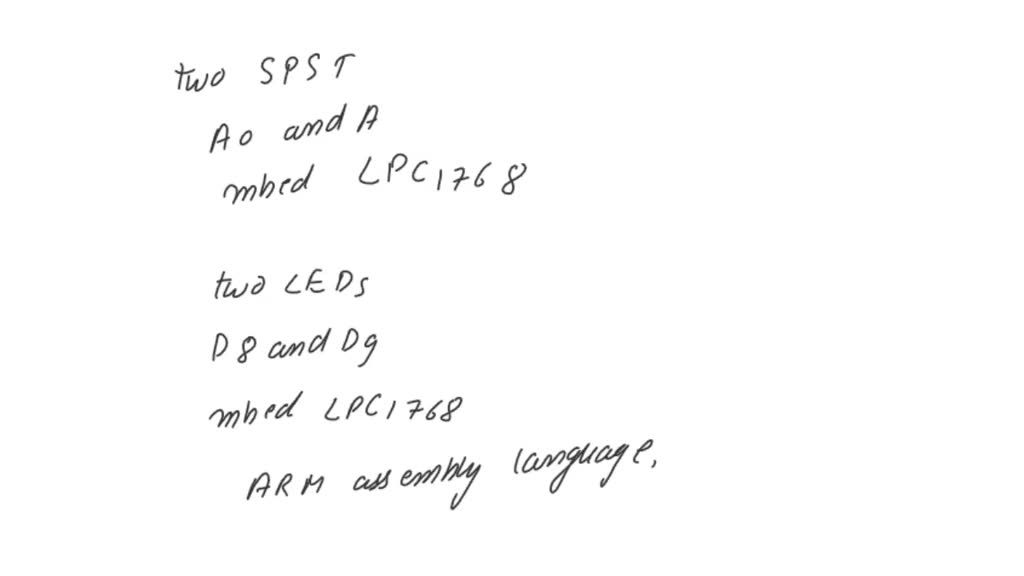 two SPST
A0 and A
mbed LPC1768
two LEDs
D8 and D9
mbed LPC1768
ARM assembly language.